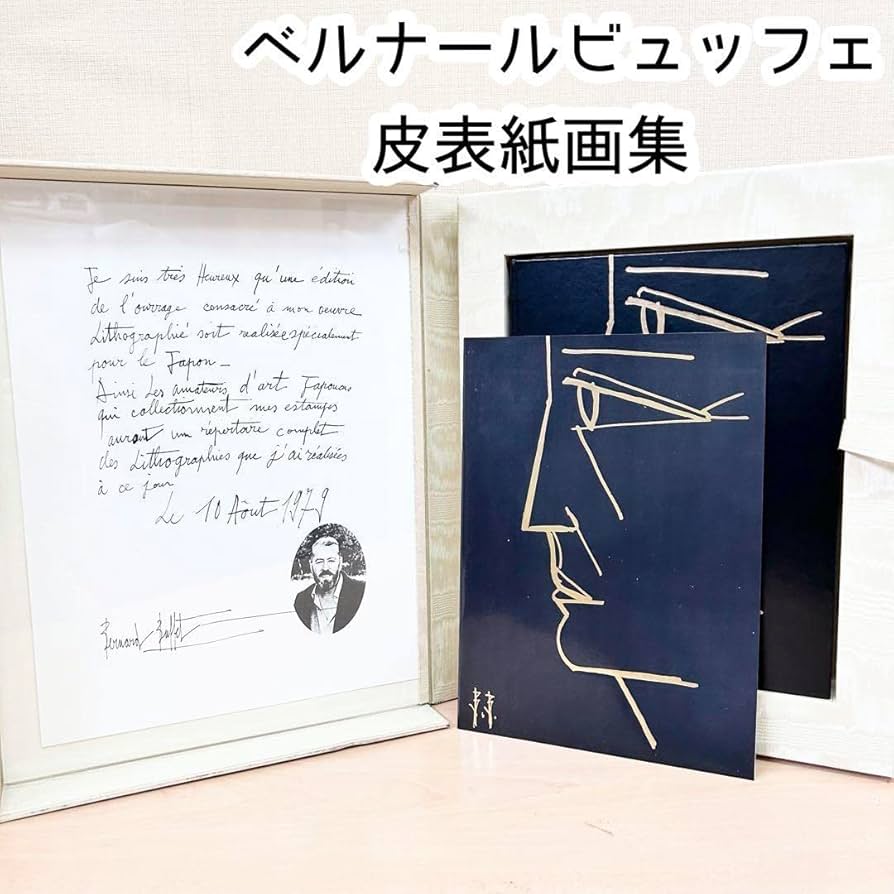 ベルナールビュッフェ
皮表紙画集
Je suis très Heureux qu'une édition
de l'ouvrage consacré à mon oeuvre
Lithographié soit realisée spécialement
pour le Japon_
Ainsi Les amateurs d'art Japonais
qui collectionnent mes estampes
auront un répertoire complet
des Lithographies que j'ai réalisées
à ce jour
Le 10 Août 1979
Bernard Buffet